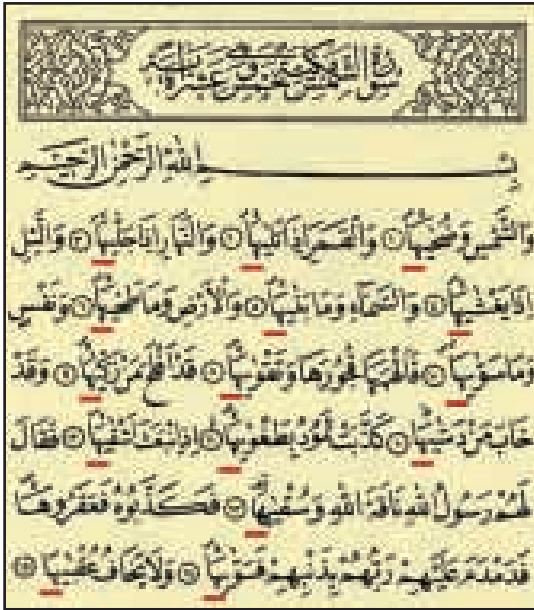 سورة الشمس مكية وهي خمس عشرة اية
بِسْمِ اللهِ الرَّحْمٰنِ الرَّحِيمِ
وَالشَّمْسِ وَضُحٰيهَاۙ ١ وَالْقَمَرِ اِذَا تَلٰيهَاۙ ٢ وَالنَّهَارِ اِذَا جَلّٰيهَاۙ ٣ وَالَّيْلِ
اِذَا يَغْشٰيهَاۙ ٤ وَالسَّمَاءِ وَمَا بَنٰيهَاۙ ٥ وَالْاَرْضِ وَمَا طَحٰيهَاۙ ٦ وَنَفْسٍ
وَمَا سَوّٰيهَاۙ ٧ فَاَلْهَمَهَا فُجُورَهَا وَتَقْوٰيهَاۙ ٨ قَدْ اَفْلَحَ مَنْ زَكّٰيهَاۙ ٩ وَقَدْ
خَابَ مَنْ دَسّٰيهَاۜ ١٠ كَذَّبَتْ ثَمُودُ بِطَغْوٰيهَاۙ ١١ اِذِ انْبَعَثَ اَشْقٰيهَاۙ ١٢ فَقَالَ
لَهُمْ رَسُولُ اللهِ نَاقَةَ اللهِ وَسُقْيٰيهَاۜ ١٣ فَكَذَّبُوهُ فَعَقَرُوهَاۙ
فَدَمْدَمَ عَلَيْهِمْ رَبُّهُمْ بِذَنْبِهِمْ فَسَوّٰيهَاۙ ١٤ وَلَا يَخَافُ عُقْبٰيهَا ١٥